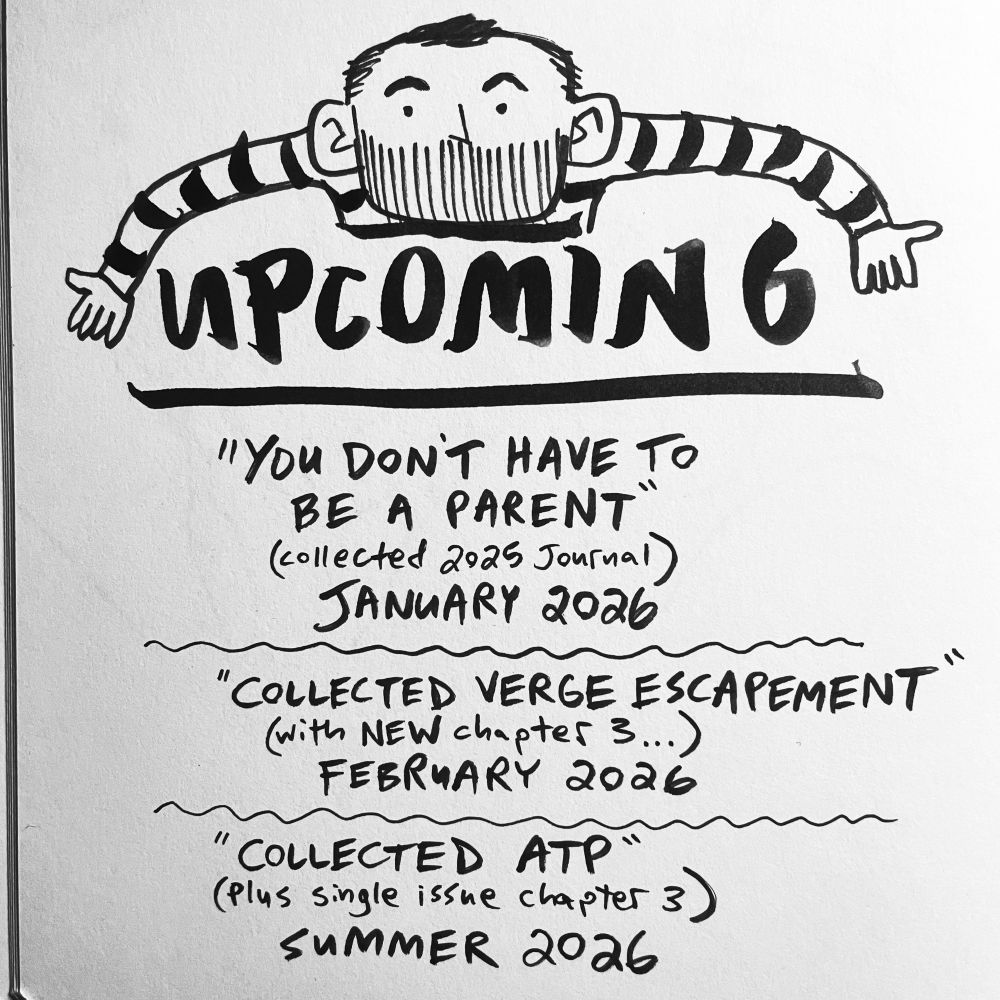 UPCOMING
"YOU DON'T HAVE TO
BE A PARENT"
(collected 2025 Journal)
JANUARY 2026
"COLLECTED VERGE ESCAPEMENT"
(with NEW chapter 3...)
FEBRUARY 2026
"COLLECTED ATP"
(Plus single issue chapter 3)
SUMMER 2026